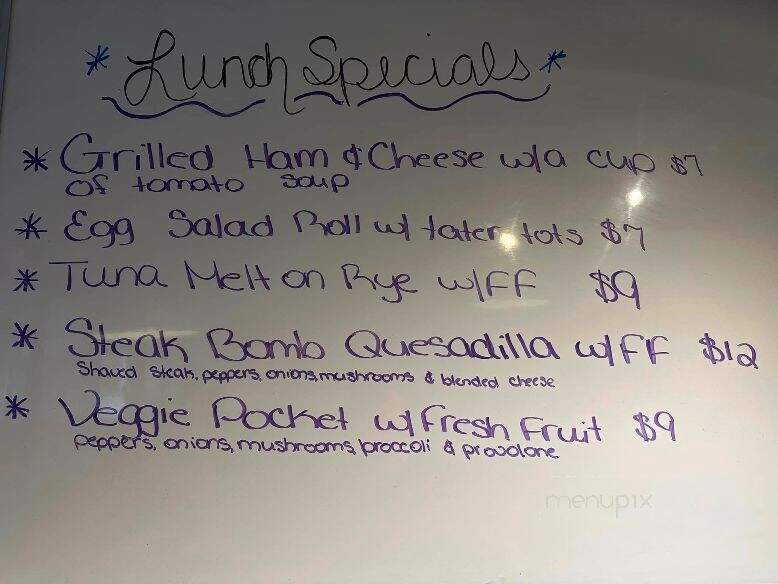 * Lunch Specials *
* Grilled Ham & Cheese w/a cup $7
of tomato soup
* Egg Salad Roll w/ tater tots $7
* Tuna Melt on Rye w/FF $9
* Steak Bomb Quesadilla w/FF $12
Shaved steak, peppers, onions, mushrooms & blended cheese
* Veggie Pocket w/Fresh Fruit $9
peppers, onions, mushrooms, broccoli & provolone
menupix